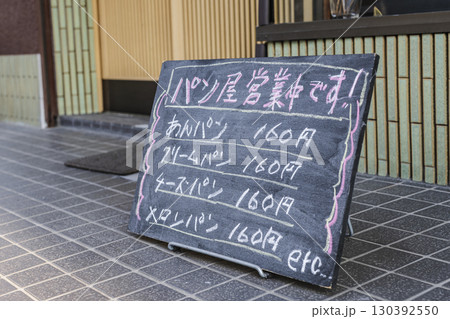 パン屋営業中です!!
あんパン 160円
クリームパン 160円
チーズパン 160円
メロンパン 160円
etc...